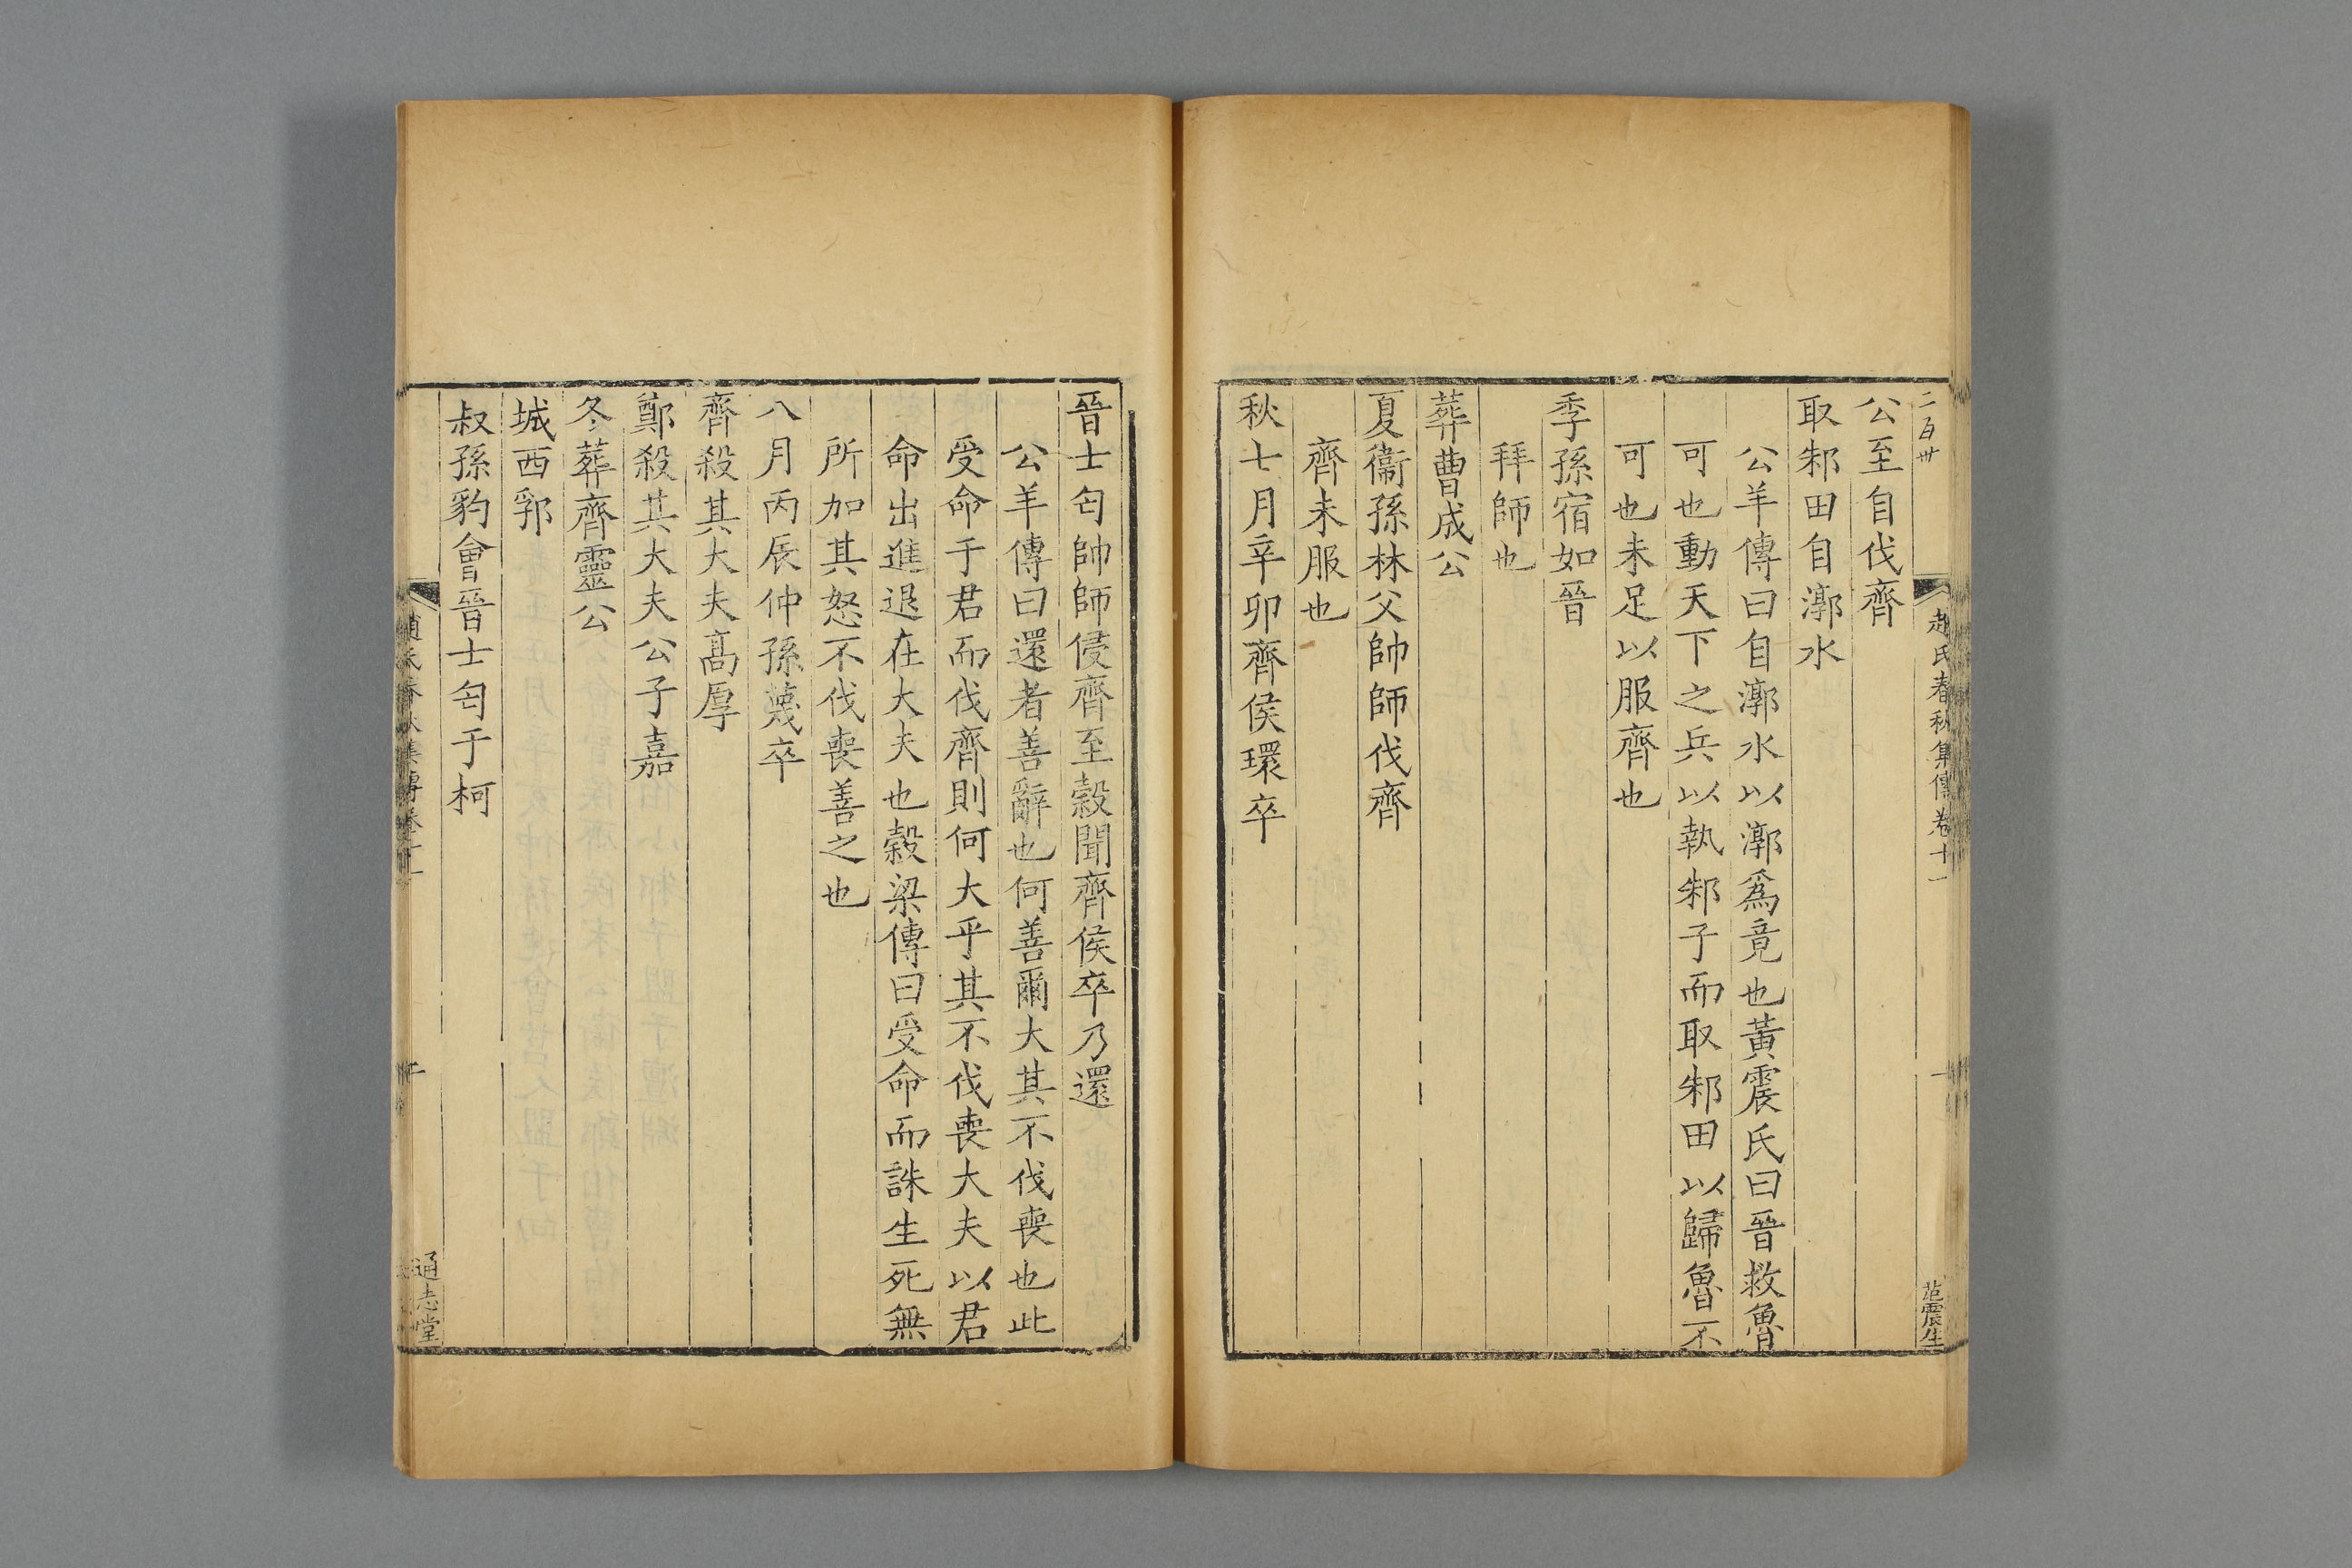 二百卅
趙氏春秋集傳卷十一
一
范震生
公至自伐齊
取邾田自漷水
公羊傳曰自漷水以漷爲竟也黃震氏曰晉救魯
可也動天下之兵以執邾子而取邾田以歸魯不
可也未足以服齊也
季孫宿如晉
拜師也
葬曹成公
夏衞孫林父帥師伐齊
齊未服也
秋七月辛卯齊侯環卒
晉士匄帥師侵齊至穀聞齊侯卒乃還
公羊傳曰還者善辭也何善爾大其不伐喪也此
受命于君而伐齊則何大乎其不伐喪大夫以君
命出進退在大夫也穀梁傳曰受命而誅生死無
所加其怒不伐喪善之也
八月丙辰仲孫蔑卒
齊殺其大夫髙厚
鄭殺其大夫公子嘉
冬葬齊靈公
城西郛
叔孫豹會晉士匄于柯
通志堂